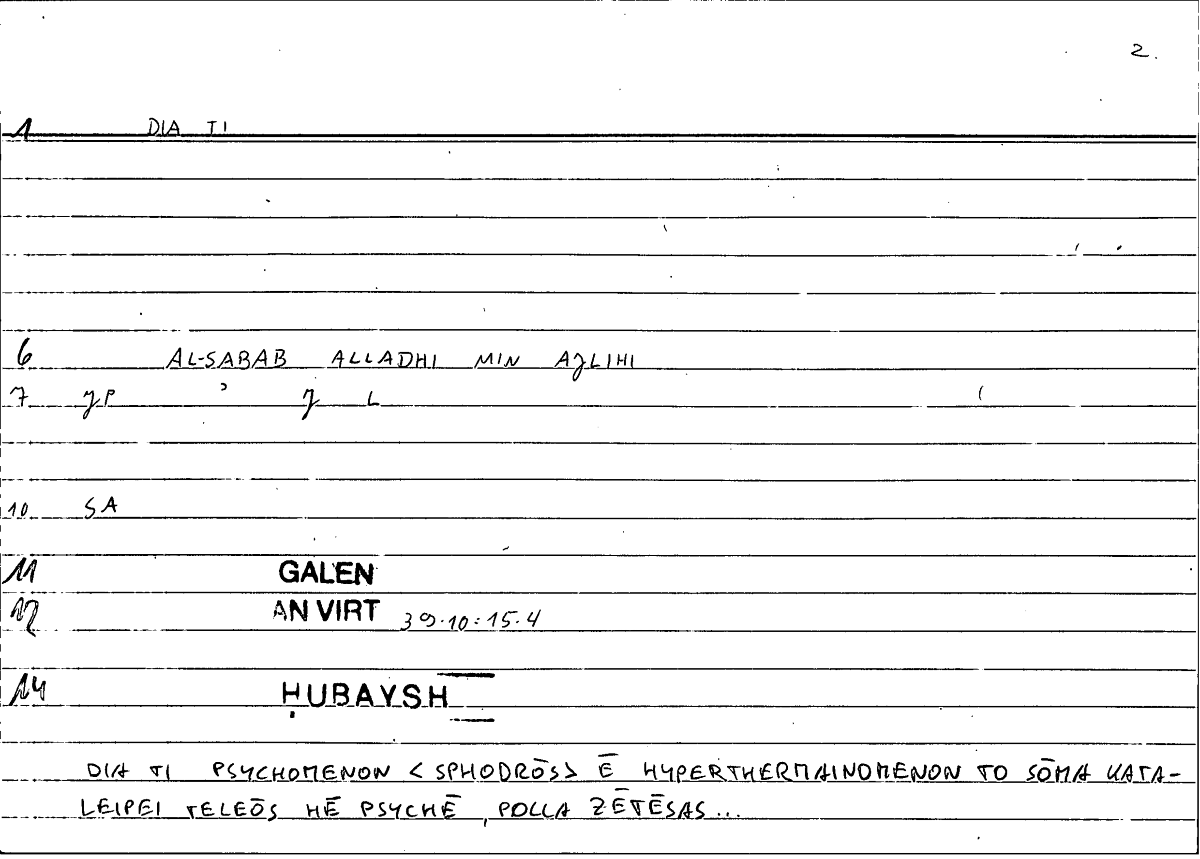 2.
1 DIA TI
6 AL-SABAB ALLADHI MIN AJLIHI
7 JP ʾ J L
10 SA
11 GALEN
12 AN VIRT 39.10:15.4
14 ḤUBAYSH
DIA TI PSYCHOMENON <SPHODRŌS> Ē HYPERTHERMAINOMENON TO SŌMA KATA-
LEIPEI TELEŌS HĒ PSYCHĒ, POLLA ZĒTĒSAS...